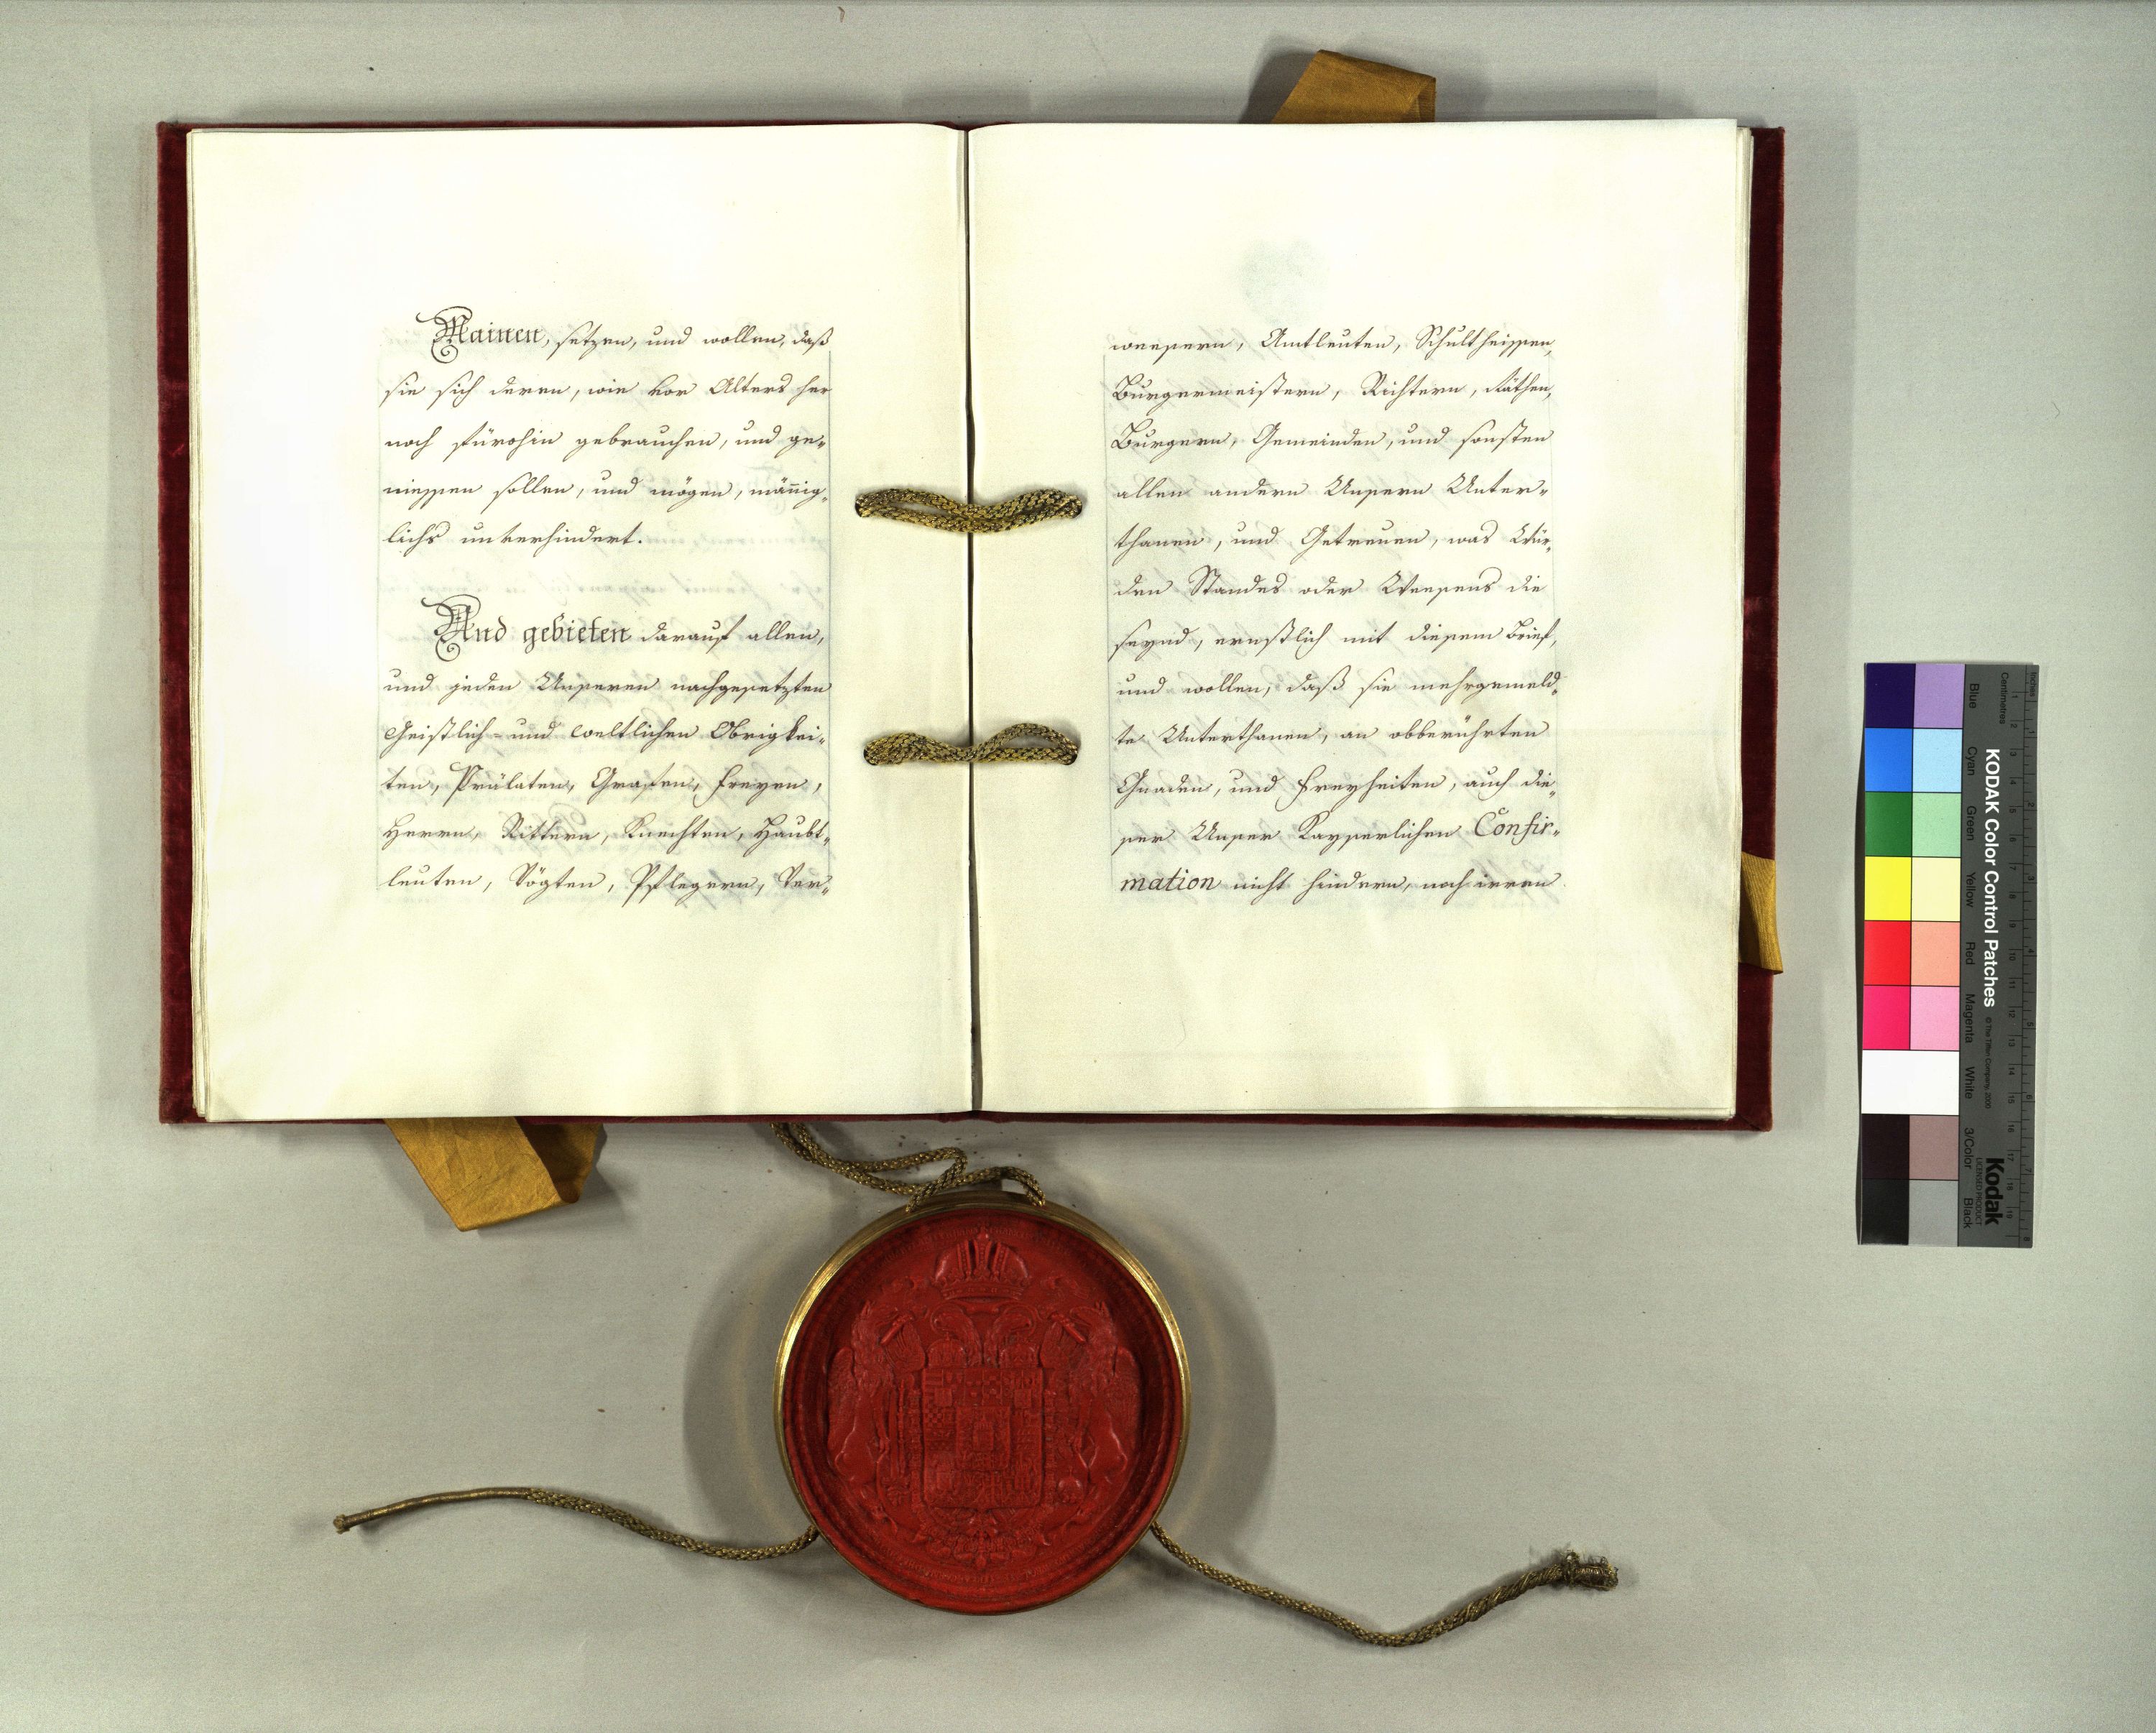 Mainen, setzen, und wollen, daß
sie sich deren, wie vor Alters her
noch fürohin gebrauchen, und ge-
niessen sollen, und mögen, mäñig-
lichs unverhindert.
Und gebieten darauf allen,
und jeden Unseren nachgesetzten
Geistlich- und weltlichen Obrigkei-
ten, Prälaten, Grafen, Freyen,
Herrn, Rittern, Knechten, Haubt-
leuten, Vögten, Pflegern, Ver-
weesern, Amtleuten, Schultheissen,
Burgermeistern, Richtern, Räthen,
Burgern, Gemeinden, und sonsten
allen andern Unsern Unter-
thanen, und Getreuen, was Wür-
den Standes oder Weesens die
seynd, ernstlich mit diesem Brief,
und wollen, daß sie mehrgemeld-
te Unterthanen, an obberührten
Gnaden, und Freyheiten, auch die-
ser Unser Kayserlichen Confir-
mation nicht hindern, noch irren
KODAK Color Control Patches
© The Tiffen Company, 2000
Kodak
LICENSED PRODUCT
Inches
Centimetres
Blue
Cyan
Green
Yellow
Red
Magenta
White
3/Color
Black